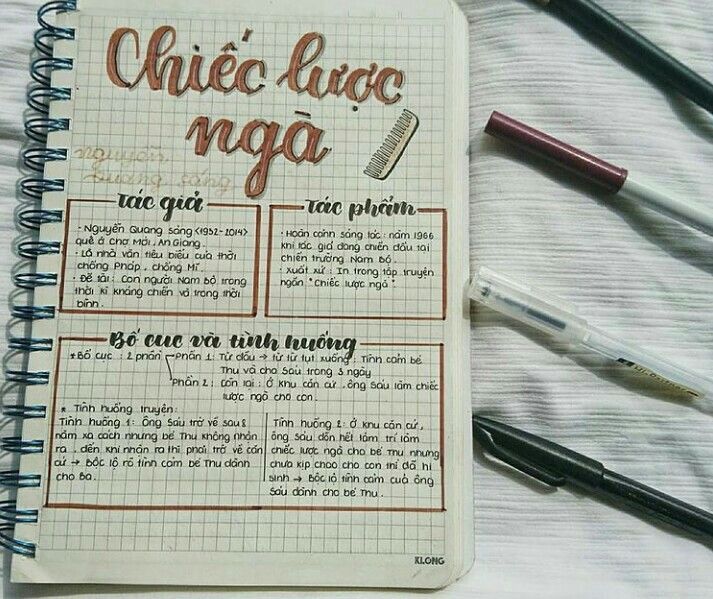 Chiếc lược
ngà
nguyễn
quang sáng
tác giả
- Nguyễn Quang sáng <1952-2014>
quê ở chợ Mới, An Giang.
- Là nhà văn tiêu biểu của thời
chống Pháp, chống Mĩ.
- Đề tài: Con người Nam Bộ trong
thời kì kháng chiến và trong thời
bình.
tác phẩm
- Hoàn cảnh sáng tác: năm 1966
khi tác giả đang chiến đấu tại
chiến trường Nam Bộ.
- Xuất xứ: In trong tập truyện
ngắn "Chiếc lược ngà"
Bố cục và tình huống
* Bố cục : 2 phần
Phần 1: Từ đầu → từ từ tụt xuống: Tình cảm bé
Thu và cha Sáu trong 3 ngày
Phần 2 : còn lại : Ở khu căn cứ, ông sáu làm chiếc
lược ngà cho con.
* Tình huống truyện:
Tình huống 1: Ông Sáu trở về sau 8
năm xa cách nhưng bé Thu không nhận
ra, đến khi nhận ra thì phải trở về căn
cứ → Bộc lộ rõ tình cảm bé Thu dành
cho Ba.
Tình huống 2: Ở khu căn cứ,
ông sáu dồn hết tâm trí làm
chiếc lược ngà cho bé Thu nhưng
chưa kịp trao cho con thì đã hi
sinh → Bộc lộ tình cảm cuả ông
Sáu dành cho bé Thu.
KLONG